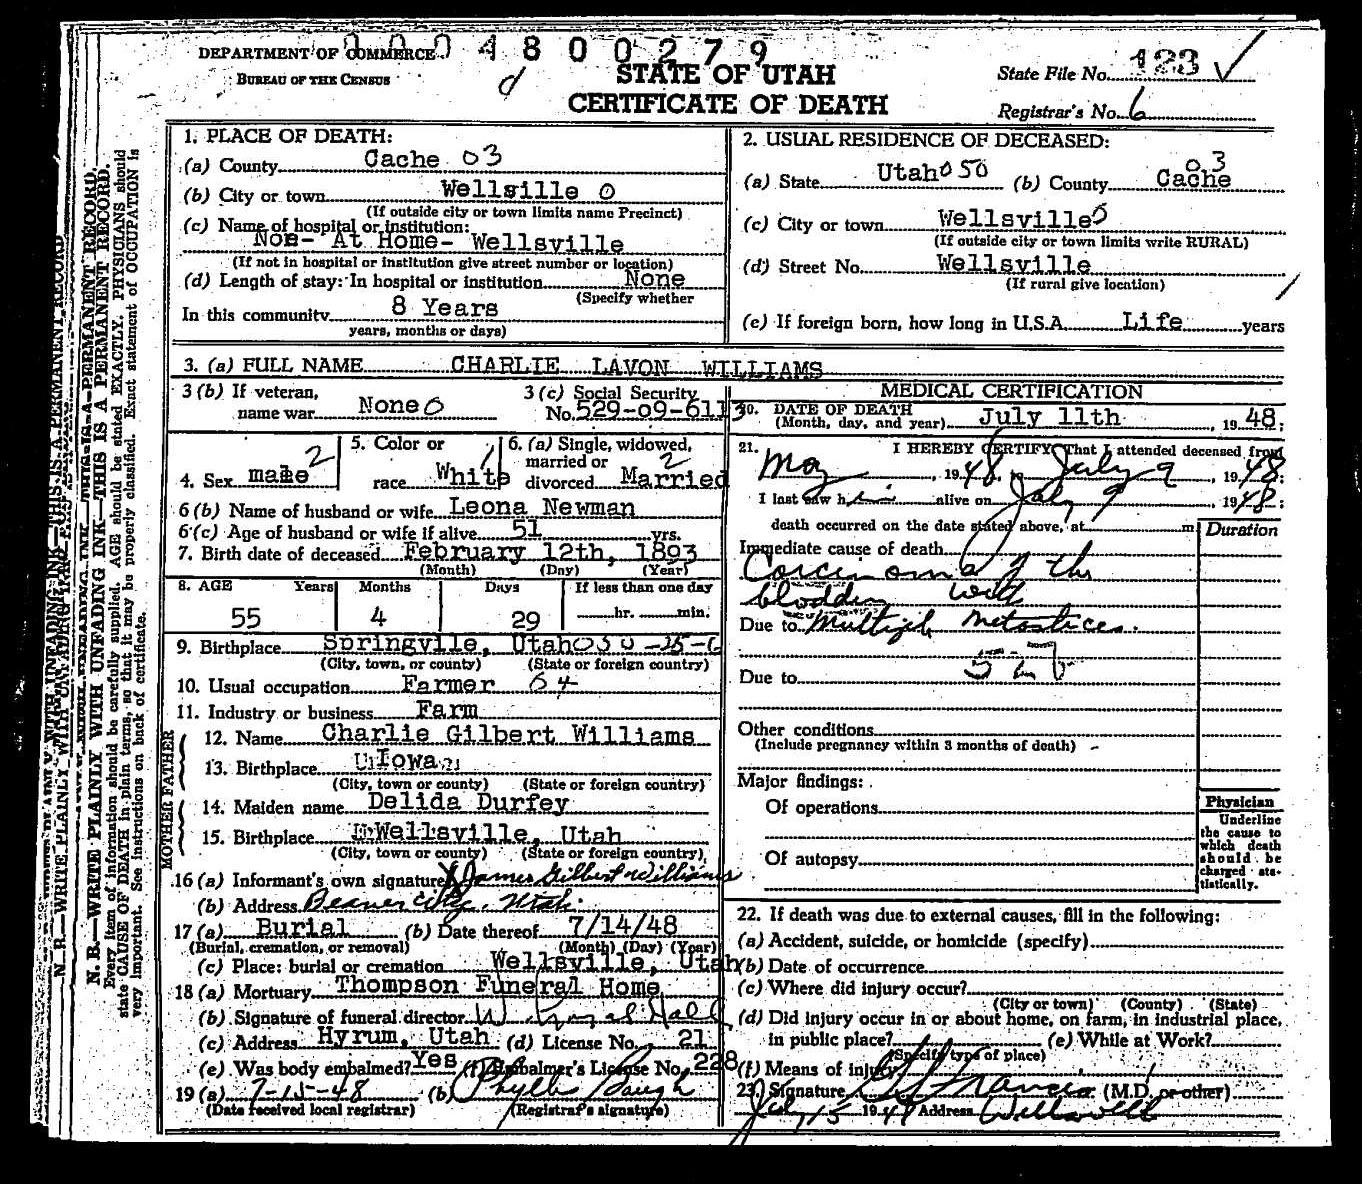 DEPARTMENT OF COMMERCE 0004800279
BUREAU OF THE CENSUS
d
STATE OF UTAH
CERTIFICATE OF DEATH
State File No. 123 ✓
Registrar's No. 6
1. PLACE OF DEATH:
(a) County Cache 03
(b) City or town Wellsille 0
(If outside city or town limits name Precinct)
(c) Name of hospital or institution:
Noe- At Home- Wellsville
(If not in hospital or institution give street number or location)
(d) Length of stay: In hospital or institution None
(Specify whether
In this community 8 Years
years, months or days)
2. USUAL RESIDENCE OF DECEASED:
(a) State Utah 050 (b) County Cache 03
(c) City or town Wellsville 0
(If outside city or town limits write RURAL)
(d) Street No. Wellsville
(If rural give location)
(e) If foreign born, how long in U.S.A. Life years
3. (a) FULL NAME CHARLIE LAVON WILLIAMS
3 (b) If veteran, name war None 0
3 (c) Social Security No. 529-09-6113
4. Sex male 2
5. Color or race White 1
6. (a) Single, widowed, married or divorced Married 2
6 (b) Name of husband or wife Leona Newman
6 (c) Age of husband or wife if alive 51 yrs.
7. Birth date of deceased February 12th, 1893
(Month) (Day) (Year)
8. AGE Years Months Days If less than one day
55 4 29 hr. min.
9. Birthplace Springvlle, Utah 050-25-
(City, town, or county) (State or foreign country)
10. Usual occupation Farmer 64
11. Industry or business Farm
FATHER
12. Name Charlie Gilbert Williams
13. Birthplace Iowa
(City, town or county) (State or foreign country)
MOTHER
14. Maiden name Delida Durfey
15. Birthplace Wellsville, Utah
(City, town or county) (State or foreign country)
16 (a) Informant's own signature X James Gilbert Williams
(b) Address Beaver City, Utah.
17 (a) Burial (b) Date thereof 7/14/48
(Burial, cremation, or removal) (Month) (Day) (Year)
(c) Place: burial or cremation Wellsville, Utah
18 (a) Mortuary Thompson Funeral Home
(b) Signature of funeral director W. Hall
(c) Address Hyrum, Utah (d) License No. 21
(e) Was body embalmed? Yes (f) Embalmer's License No. 228
19 (a) 7-15-48 (b) Phyllis Baugh
(Date received local registrar) (Registrar's signature)
MEDICAL CERTIFICATION
20. DATE OF DEATH
(Month, day, and year) July 11th, 1948;
21. I HEREBY CERTIFY, That I attended deceased from
May, 1948, July 9, 1948;
I last saw him alive on July 9, 1948;
death occurred on the date stated above, at m
Duration
Immediate cause of death
Carcinoma of the
bladder with
Due to Multiple Metastices.
Due to
Other conditions
(Include pregnancy within 3 months of death) -
Major findings:
Of operations
Of autopsy
Physician
Underline
the cause to
which death
should be
charged sta-
tistically.
22. If death was due to external causes, fill in the following:
(a) Accident, suicide, or homicide (specify)
(b) Date of occurrence
(c) Where did injury occur?
(City or town) (County) (State)
(d) Did injury occur in or about home, on farm, in industrial place,
in public place? (e) While at Work?
(Specify type of place)
(f) Means of injury
23. Signature Francis (M.D. or other)
July 15 1948 Address Wellsville
N. B.—WRITE PLAINLY WITH UNFADING INK—THIS IS A PERMANENT RECORD.
Every item of information should be carefully supplied. AGE should be stated EXACTLY. PHYSICIANS should
state CAUSE OF DEATH in plain terms, so that it may be properly classified. Exact statement of OCCUPATION is
very important. See instructions on back of certificate.